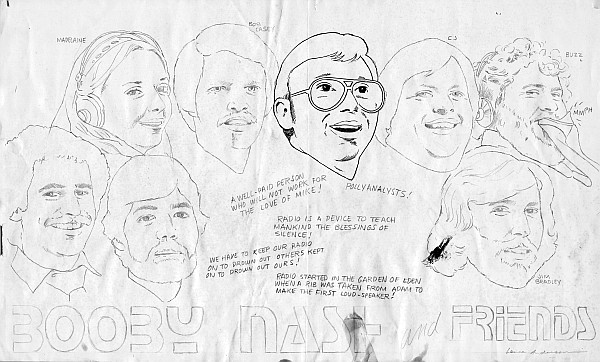 MADELAINE
BOB
CASEY
CJ
BUZZ
MMPH
A WELL-PAID PERSON
WHO WILL NOT WORK FOR
THE LOVE OF MIKE!
POLLYANALYSTS!
RADIO IS A DEVICE TO TEACH
MANKIND THE BLESSINGS OF
SILENCE!
WE HAVE TO KEEP OUR RADIO
ON TO DROWN OUT OTHERS KEPT
ON TO DROWN OUT OURS!
RADIO STARTED IN THE GARDEN OF EDEN
WHEN A RIB WAS TAKEN FROM ADAM TO
MAKE THE FIRST LOUD-SPEAKER!
JIM
BRADLEY
BOOBY NASH and FRIENDS